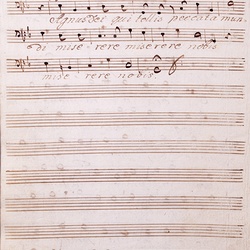 Agnus Dei qui tollis peccata mun
di mise rere miserere nobis
mise rere nobis